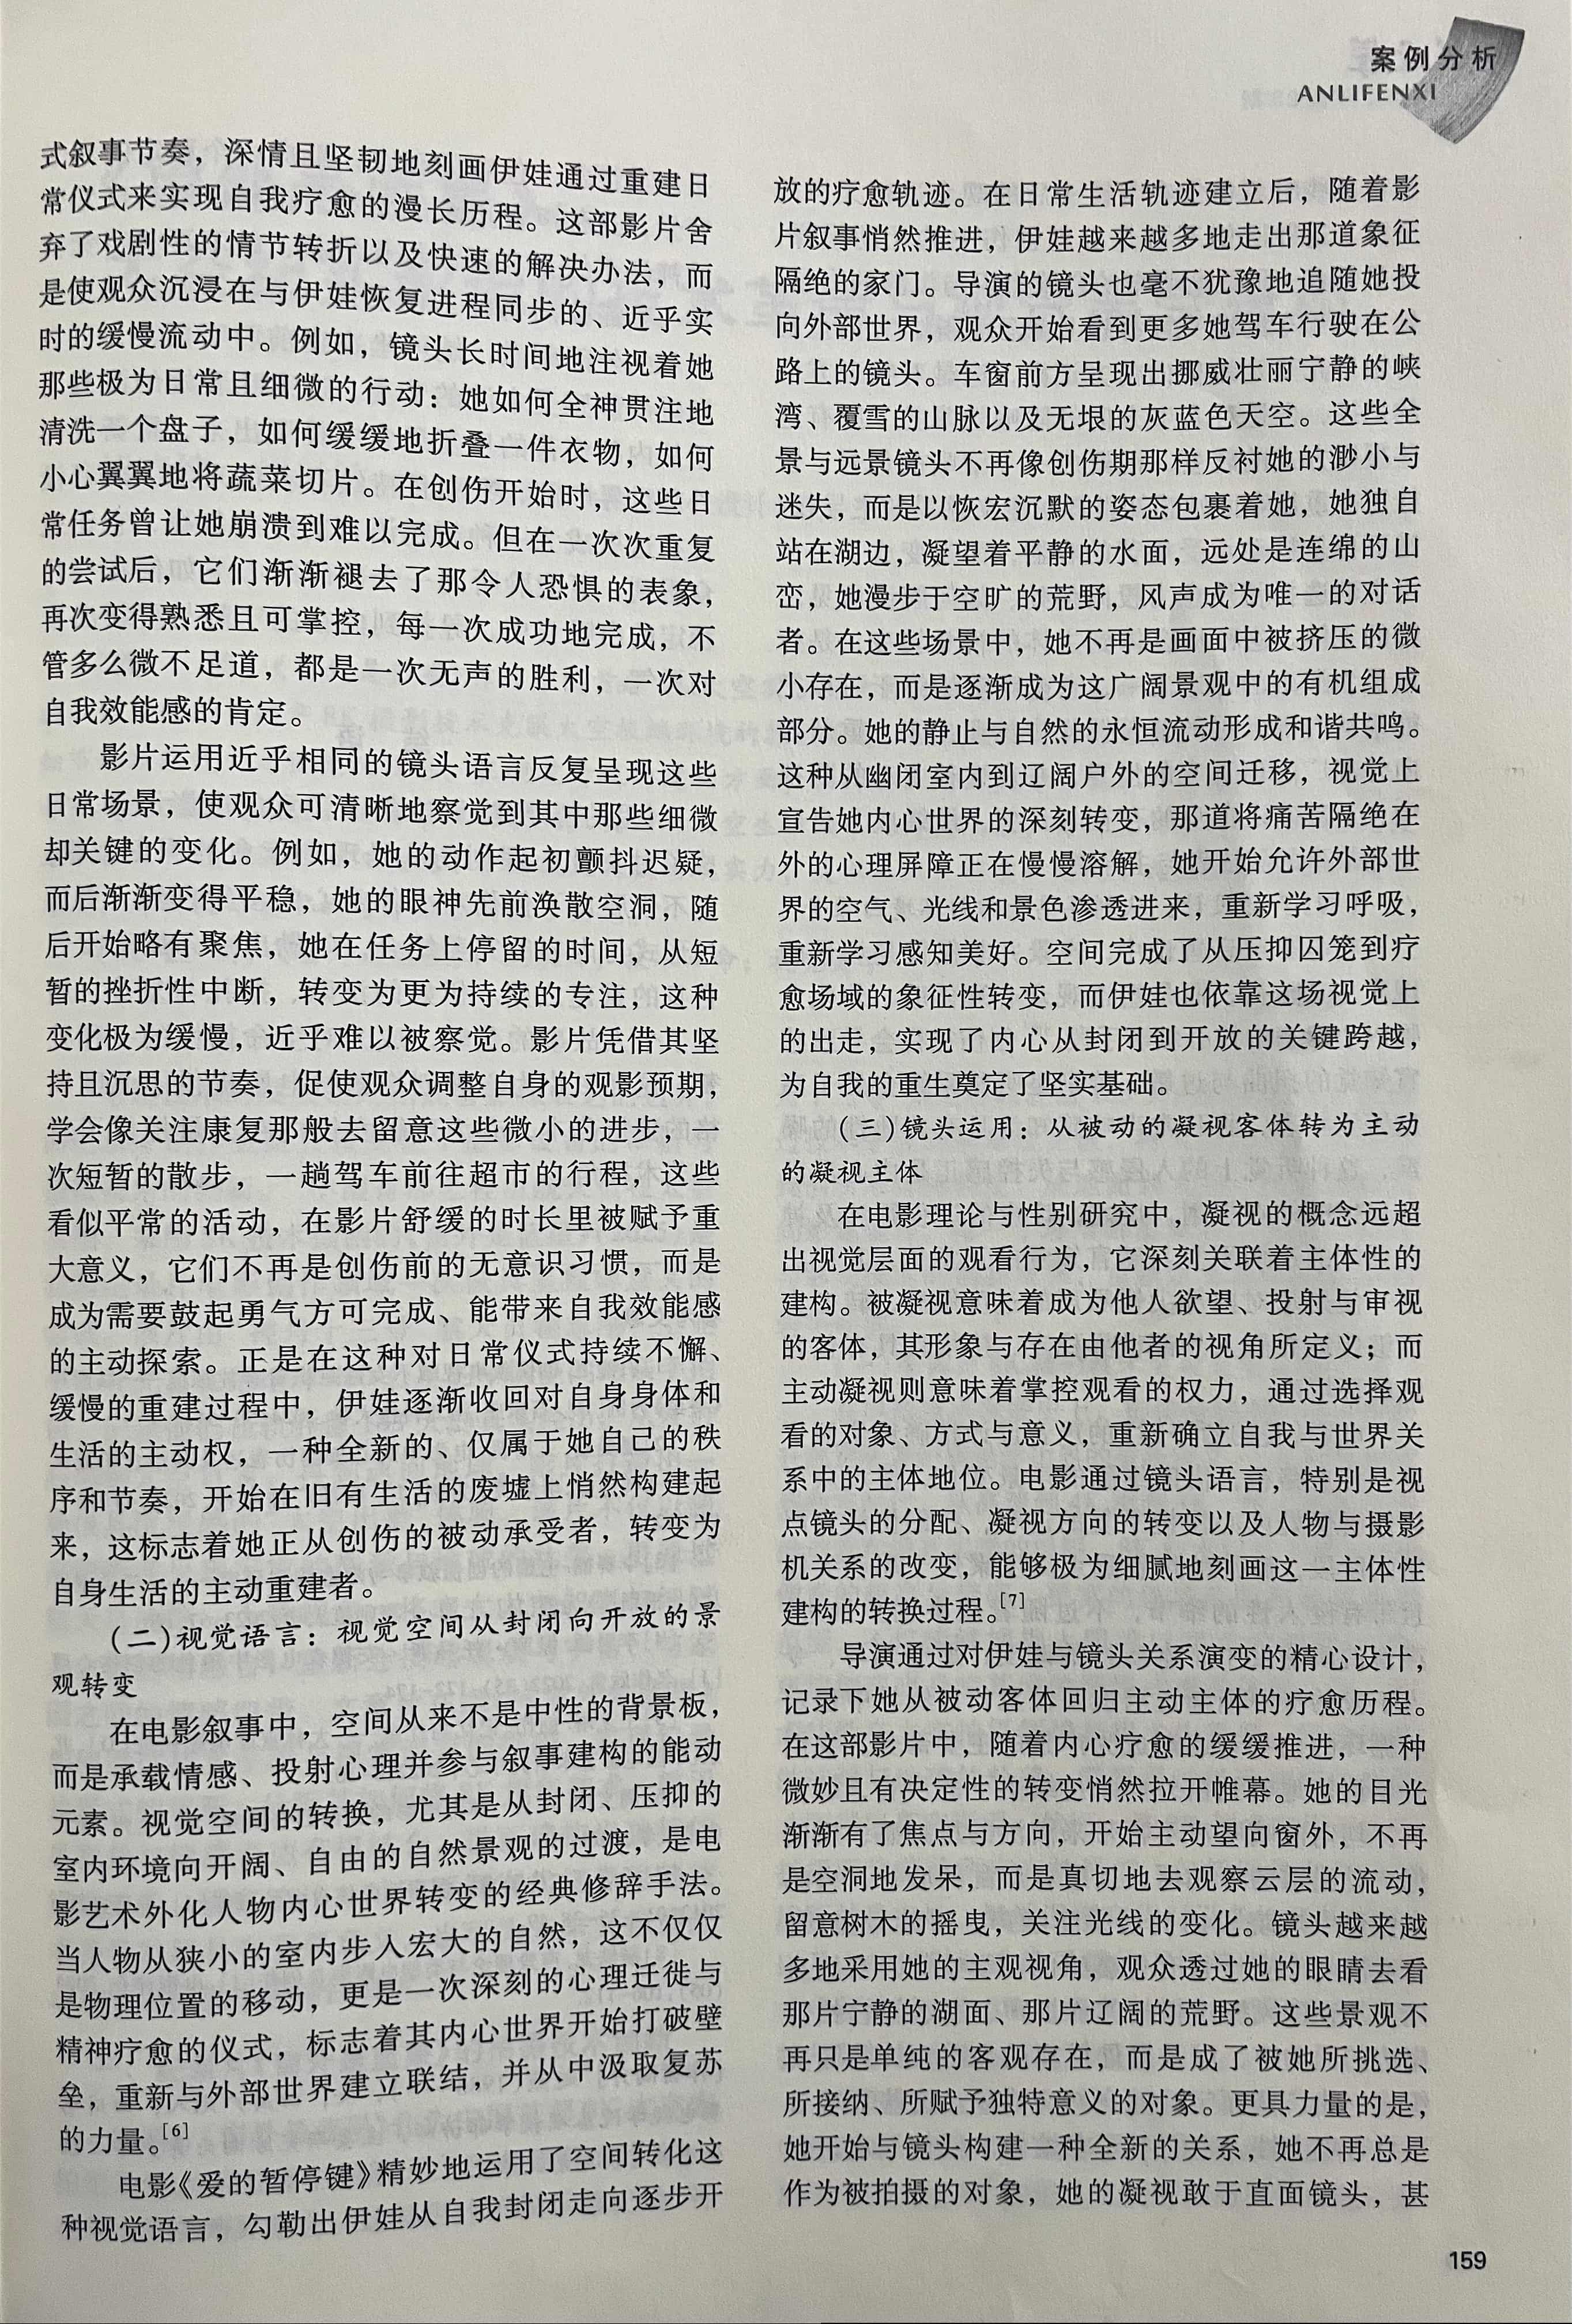 案例分析
ANLIFENXI
式叙事节奏，深情且坚韧地刻画伊娃通过重建日
常仪式来实现自我疗愈的漫长历程。这部影片舍
弃了戏剧性的情节转折以及快速的解决办法，而
是使观众沉浸在与伊娃恢复进程同步的、近乎实
时的缓慢流动中。例如，镜头长时间地注视着她
那些极为日常且细微的行动：她如何全神贯注地
清洗一个盘子，如何缓缓地折叠一件衣物，如何
小心翼翼地将蔬菜切片。在创伤开始时，这些日
常任务曾让她崩溃到难以完成。但在一次次重复
的尝试后，它们渐渐褪去了那令人恐惧的表象，
再次变得熟悉且可掌控，每一次成功地完成，不
管多么微不足道，都是一次无声的胜利，一次对
自我效能感的肯定。
影片运用近乎相同的镜头语言反复呈现这些
日常场景，使观众可清晰地察觉到其中那些细微
却关键的变化。例如，她的动作起初颤抖迟疑，
而后渐渐变得平稳，她的眼神先前涣散空洞，随
后开始略有聚焦，她在任务上停留的时间，从短
暂的挫折性中断，转变为更为持续的专注，这种
变化极为缓慢，近乎难以被察觉。影片凭借其坚
持且沉思的节奏，促使观众调整自身的观影预期，
学会像关注康复那般去留意这些微小的进步，一
次短暂的散步，一趟驾车前往超市的行程，这些
看似平常的活动，在影片舒缓的时长里被赋予重
大意义，它们不再是创伤前的无意识习惯，而是
成为需要鼓起勇气方可完成、能带来自我效能感
的主动探索。正是在这种对日常仪式持续不懈、
缓慢的重建过程中，伊娃逐渐收回对自身身体和
生活的主动权，一种全新的、仅属于她自己的秩
序和节奏，开始在旧有生活的废墟上悄然构建起
来，这标志着她正从创伤的被动承受者，转变为
自身生活的主动重建者。
（二）视觉语言：视觉空间从封闭向开放的景
观转变
在电影叙事中，空间从来不是中性的背景板，
而是承载情感、投射心理并参与叙事建构的能动
元素。视觉空间的转换，尤其是从封闭、压抑的
室内环境向开阔、自由的自然景观的过渡，是电
影艺术外化人物内心世界转变的经典修辞手法。
当人物从狭小的室内步入宏大的自然，这不仅仅
是物理位置的移动，更是一次深刻的心理迁徙与
精神疗愈的仪式，标志着其内心世界开始打破壁
垒，重新与外部世界建立联结，并从中汲取复苏
的力量。[6]
电影《爱的暂停键》精妙地运用了空间转化这
种视觉语言，勾勒出伊娃从自我封闭走向逐步开
放的疗愈轨迹。在日常生活轨迹建立后，随着影
片叙事悄然推进，伊娃越来越多地走出那道象征
隔绝的家门。导演的镜头也毫不犹豫地追随她投
向外部世界，观众开始看到更多她驾车行驶在公
路上的镜头。车窗前方呈现出挪威壮丽宁静的峡
湾、覆雪的山脉以及无垠的灰蓝色天空。这些全
景与远景镜头不再像创伤期那样反衬她的渺小与
迷失，而是以恢宏沉默的姿态包裹着她，她独自
站在湖边，凝望着平静的水面，远处是连绵的山
峦，她漫步于空旷的荒野，风声成为唯一的对话
者。在这些场景中，她不再是画面中被挤压的微
小存在，而是逐渐成为这广阔景观中的有机组成
部分。她的静止与自然的永恒流动形成和谐共鸣。
这种从幽闭室内到辽阔户外的空间迁移，视觉上
宣告她内心世界的深刻转变，那道将痛苦隔绝在
外的心理屏障正在慢慢溶解，她开始允许外部世
界的空气、光线和景色渗透进来，重新学习呼吸，
重新学习感知美好。空间完成了从压抑囚笼到疗
愈场域的象征性转变，而伊娃也依靠这场视觉上
的出走，实现了内心从封闭到开放的关键跨越，
为自我的重生奠定了坚实基础。
（三）镜头运用：从被动的凝视客体转为主动
的凝视主体
在电影理论与性别研究中，凝视的概念远超
出视觉层面的观看行为，它深刻关联着主体性的
建构。被凝视意味着成为他人欲望、投射与审视
的客体，其形象与存在由他者的视角所定义；而
主动凝视则意味着掌控观看的权力，通过选择观
看的对象、方式与意义，重新确立自我与世界关
系中的主体地位。电影通过镜头语言，特别是视
点镜头的分配、凝视方向的转变以及人物与摄影
机关系的改变，能够极为细腻地刻画这一主体性
建构的转换过程。[7]
导演通过对伊娃与镜头关系演变的精心设计，
记录下她从被动客体回归主动主体的疗愈历程。
在这部影片中，随着内心疗愈的缓缓推进，一种
微妙且有决定性的转变悄然拉开帷幕。她的目光
渐渐有了焦点与方向，开始主动望向窗外，不再
是空洞地发呆，而是真切地去观察云层的流动，
留意树木的摇曳，关注光线的变化。镜头越来越
多地采用她的主观视角，观众透过她的眼睛去看
那片宁静的湖面、那片辽阔的荒野。这些景观不
再只是单纯的客观存在，而是成了被她所挑选、
所接纳、所赋予独特意义的对象。更具力量的是，
她开始与镜头构建一种全新的关系，她不再总是
作为被拍摄的对象，她的凝视敢于直面镜头，甚
159